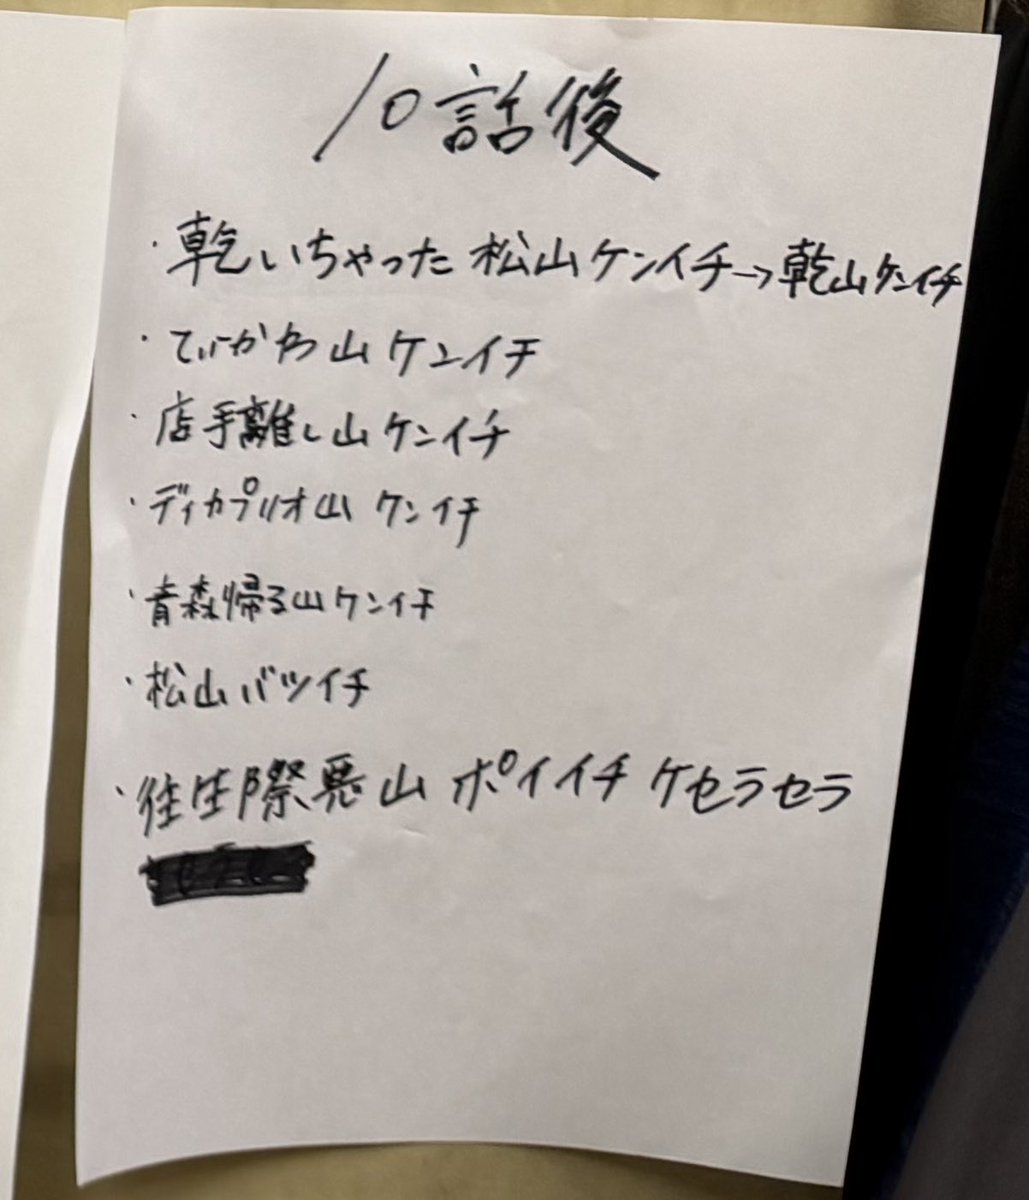 10話後
・乾いちゃった松山ケンイチ→乾山ケンイチ
・てぃかわ山ケンイチ
・店手離し山ケンイチ
・ディカプリオ山ケンイチ
・青森帰る山ケンイチ
・松山バツイチ
・往生際悪山ポイイチケセラセラ